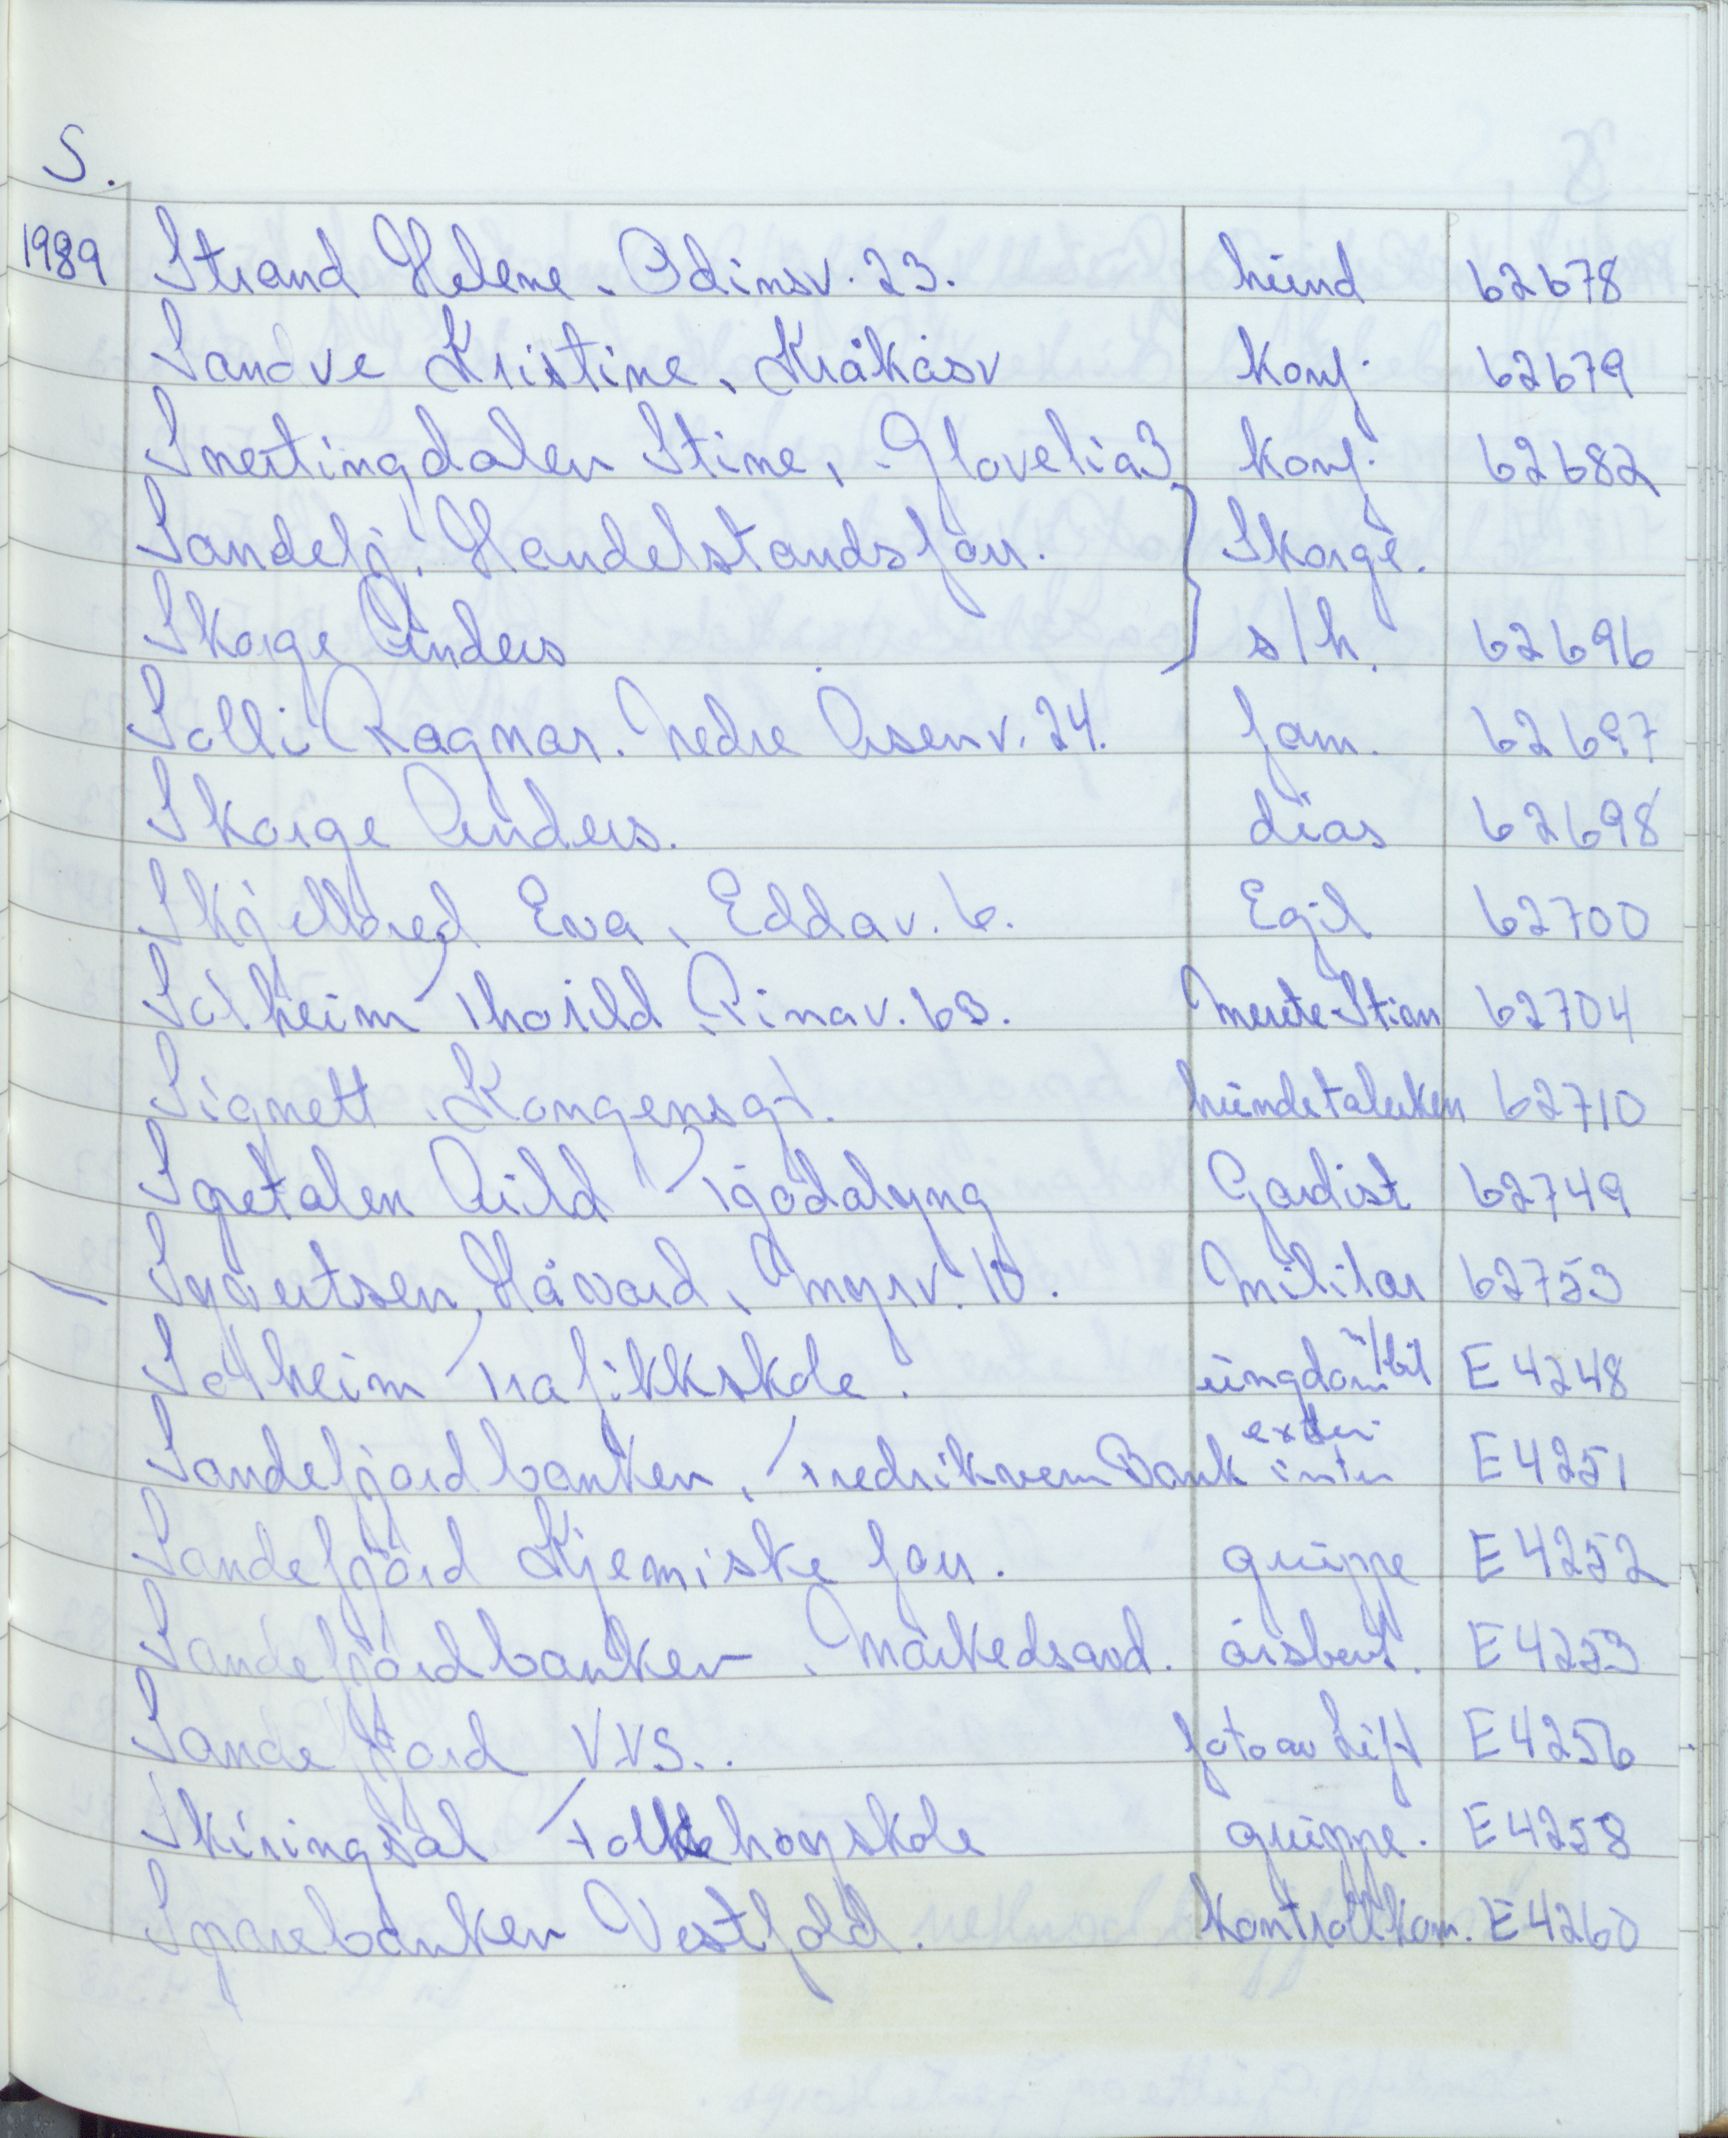 S.
1989 Strand Helene. Odinsv. 23. hund 62678
Sandve Kristine, Kråkåsv konf. 62679
Snertingdalen Stine, Glovelia 3 konf. 62682
Sandefj. Handelstandsfor. } Skorge.
Skorge Anders s/h. 62696
Solli Ragnar. Nedre Åsenv. 24. fam. 62697
Skorge Anders. dias 62698
Skjellbred Eva, Eddav. 6. Egil 62700
Solheim Thorild, Pinav. 63. Merete-Stian 62704
Signett, Kongensgt. hundetalerken 62710
Spetalen Arild Tjødalyng Gardist 62749
Syvertsen, Håvard, Myrv. 10. Militær 62753
Solheim Trafikkskole. ungdom m/bil E4248
Sandefjordbanken, Fredriksvern Bank exter. inter E4251
Sandefjord Kjemiske for. gruppe E4252
Sandefjordbanken, Markedsavd. årsberet. E4253
Sandefjord V.V.S.. foto av Lift E4256
Skiringsal Folkehøyskole gruppe. E4258
Sparebanken Vestfold. Kontrollkom. E4260